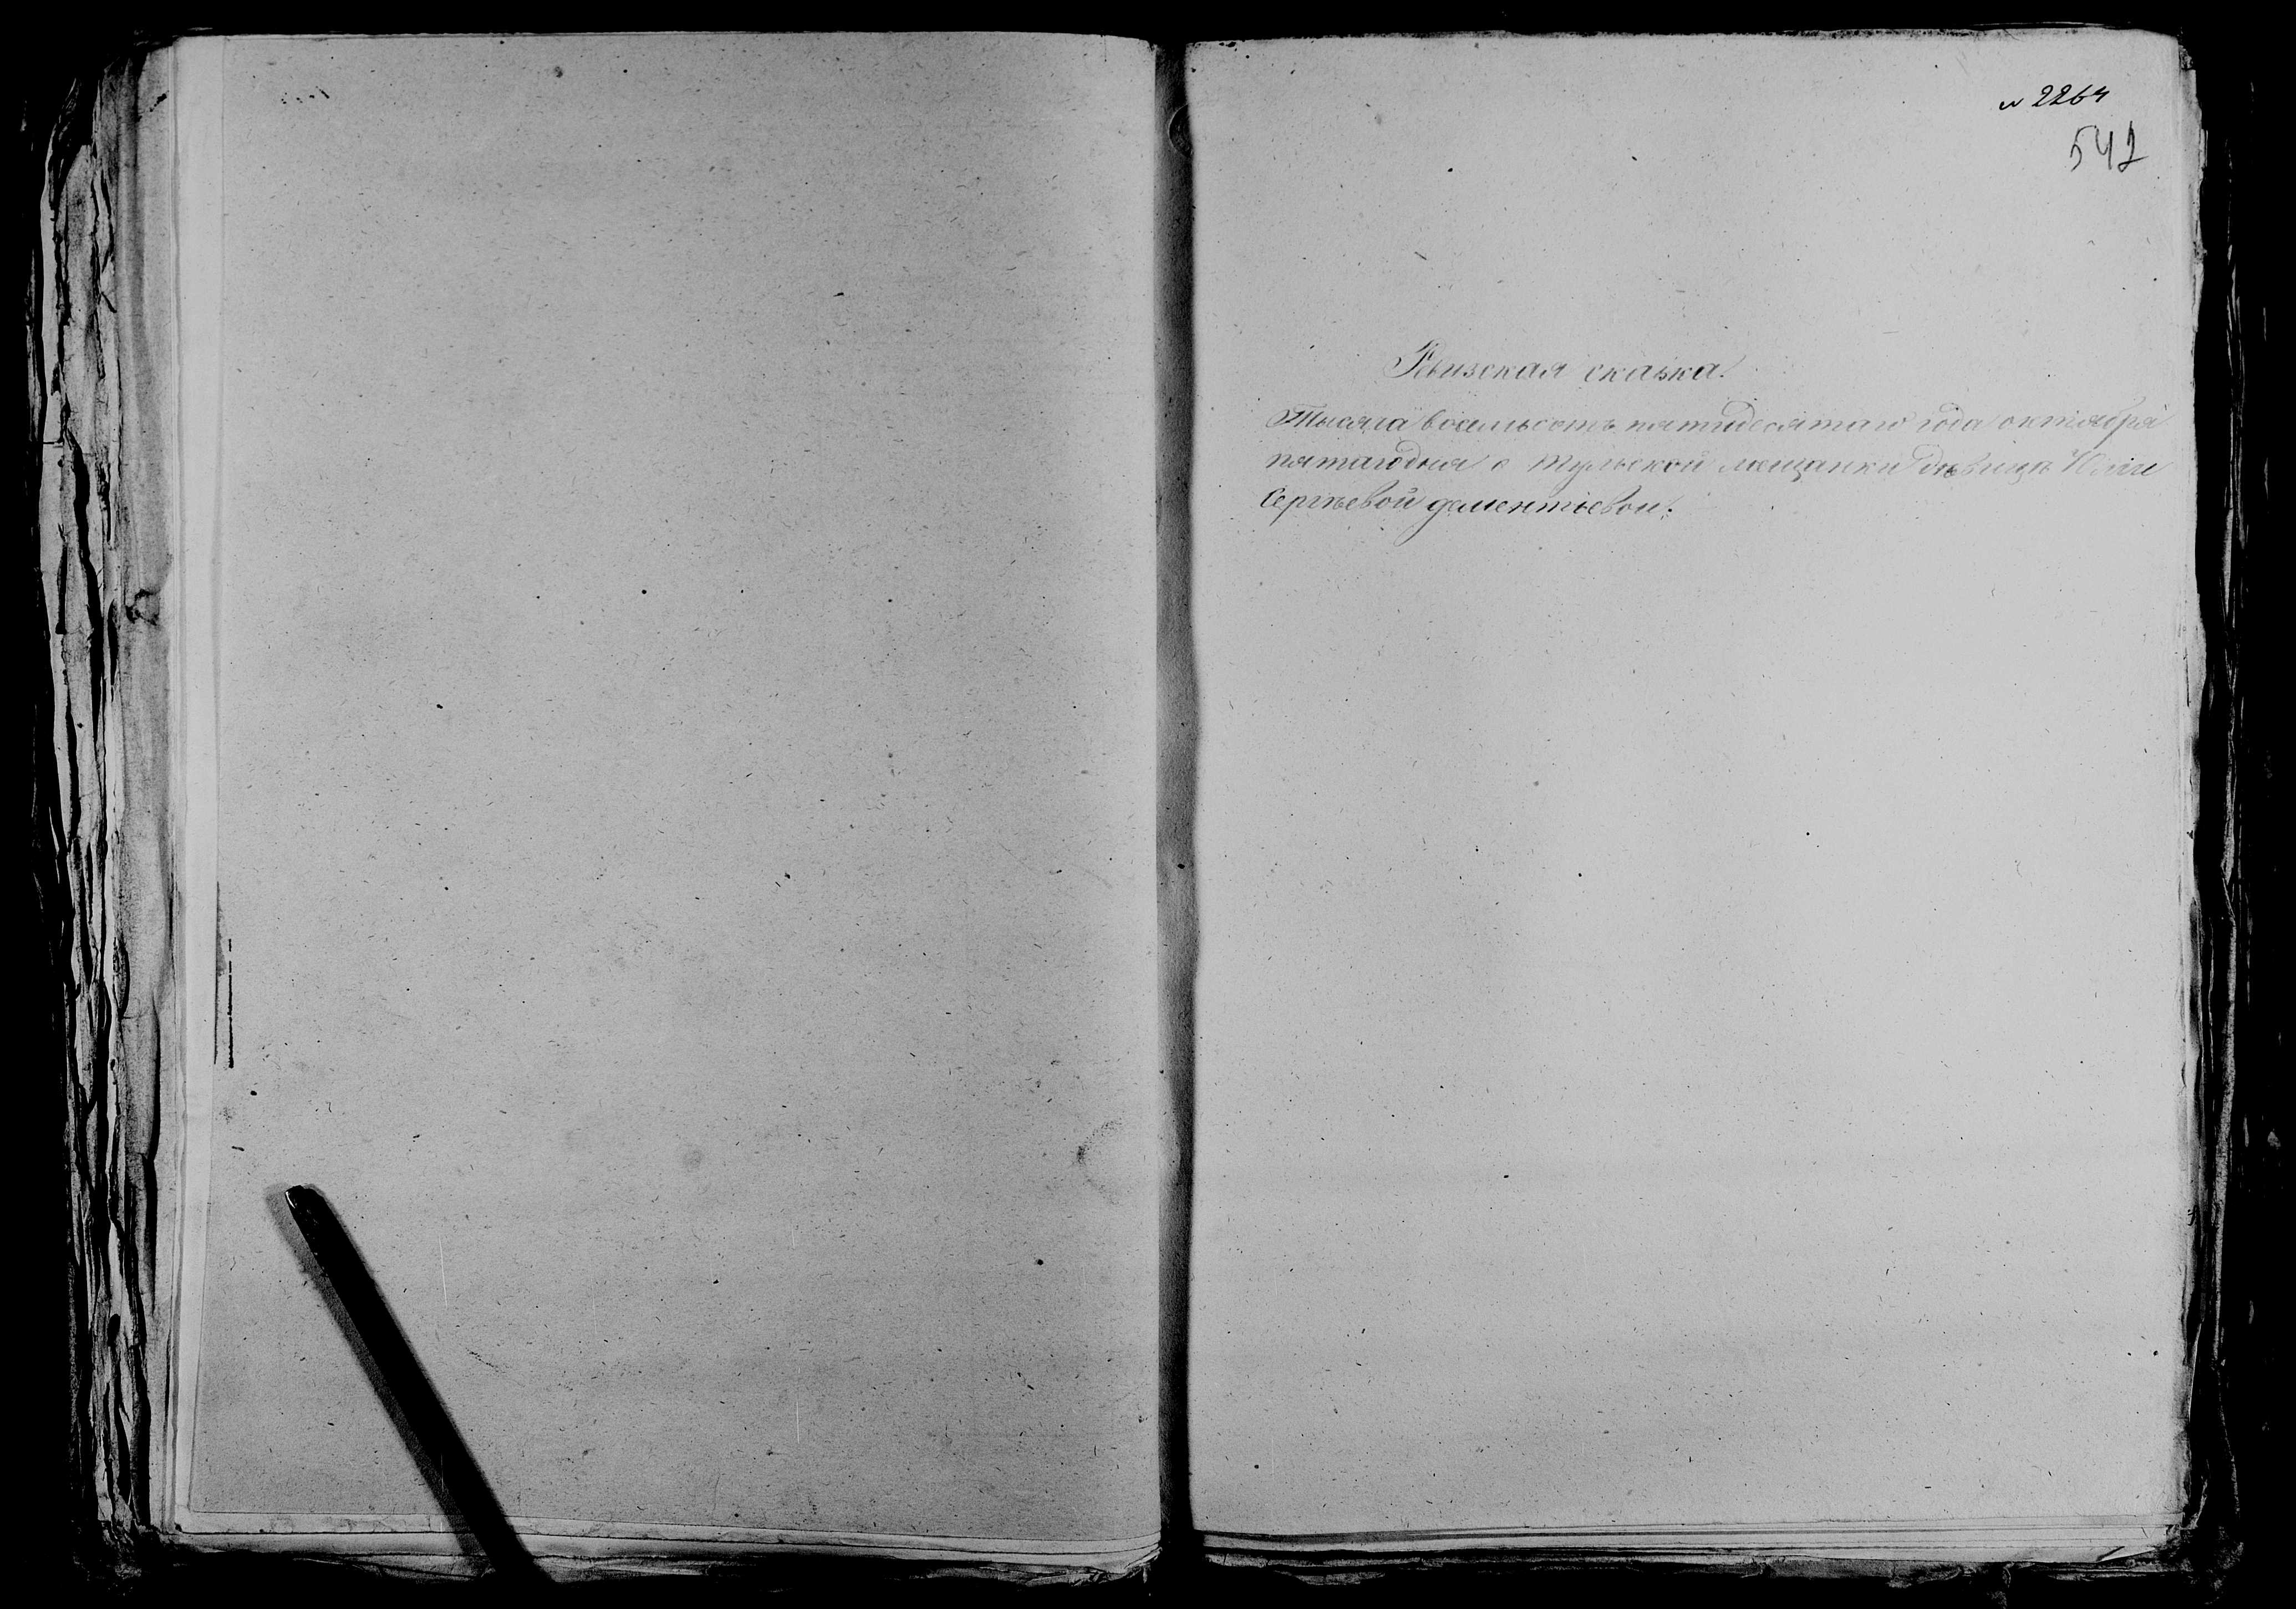 № 2264
542
Ревизская сказка.
Тысяча восемьсотъ пятидесятаго года октября
пятагодня о тульской мещанки дѣвицѣ Юліи
Сергѣевой дементьевой.